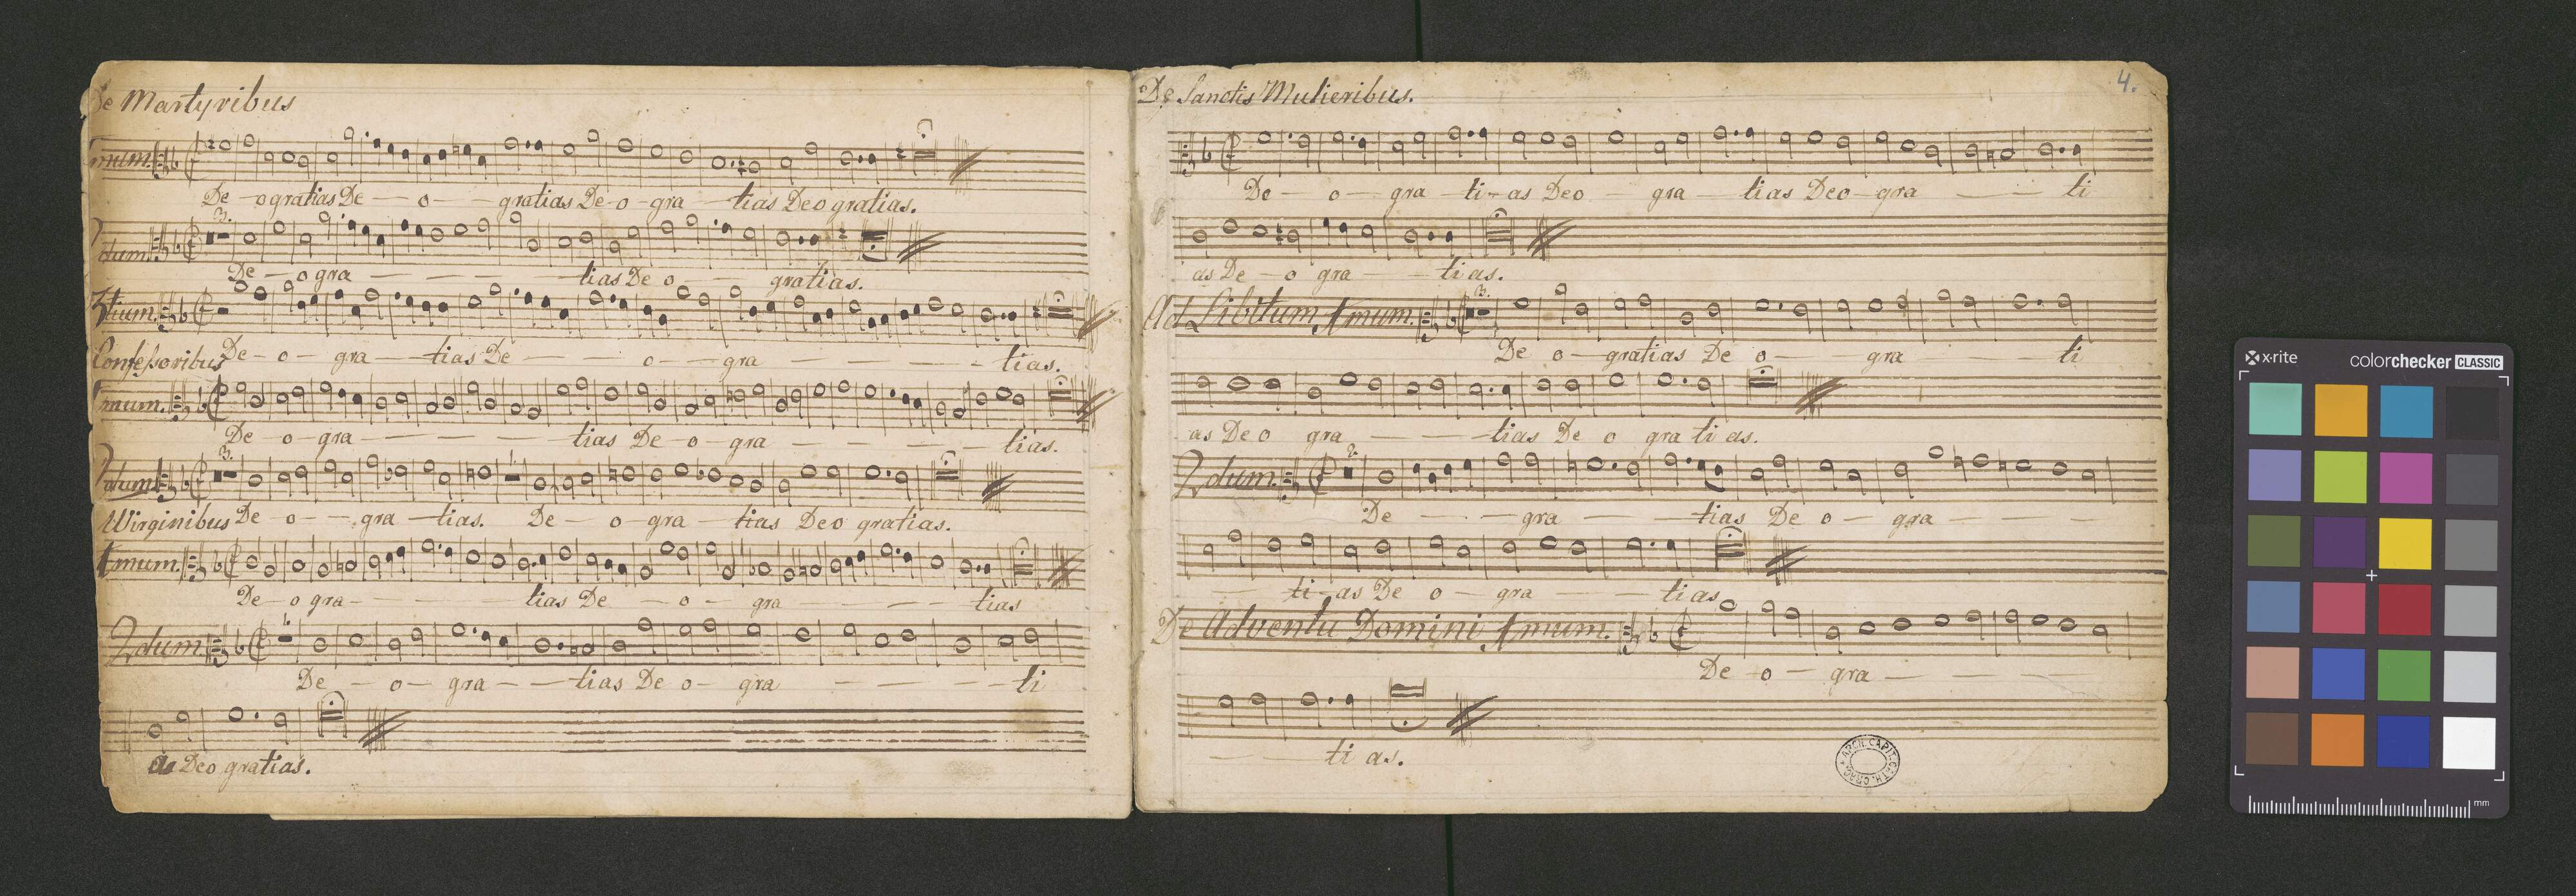 De Martyribus
1mum.
De - o gratias De - o - gratias De - o - gra - tias Deo gratias.
3.
2dum.
De - o gra - tias De o - gratias.
3tium.
De - o - gra - tias De - o - gra - tias.
Confessoribus
1mum.
De - o - gra - tias De - o - gra - tias.
3.
2dum.
1.
Virginibus De - o - gra - tias. De - o - gra - tias Deo gratias.
1mum.
De - o gra - tias De - o - gra - tias
1.
2dum.
De - o - gra - tias De o - gra - ti
as Deo gratias.
4.
De Sanctis Mulieribus.
De - o - gra - ti - as Deo gra - tias Deo - gra - ti
as De - o gra - tias.
3.
Ad Libitum 1mum.
De o - gratias De o - gra - ti
as De o gra - tias De o gra ti as.
2.
2dum.
De - gra - tias De - o - gra -
- ti - as De o - gra - tias
De Adventu Domini 1mum.
De - o - gra -
- ti as.
ARCH. CAPIT. CATH. CRAC.
x-rite
colorchecker CLASSIC
mm